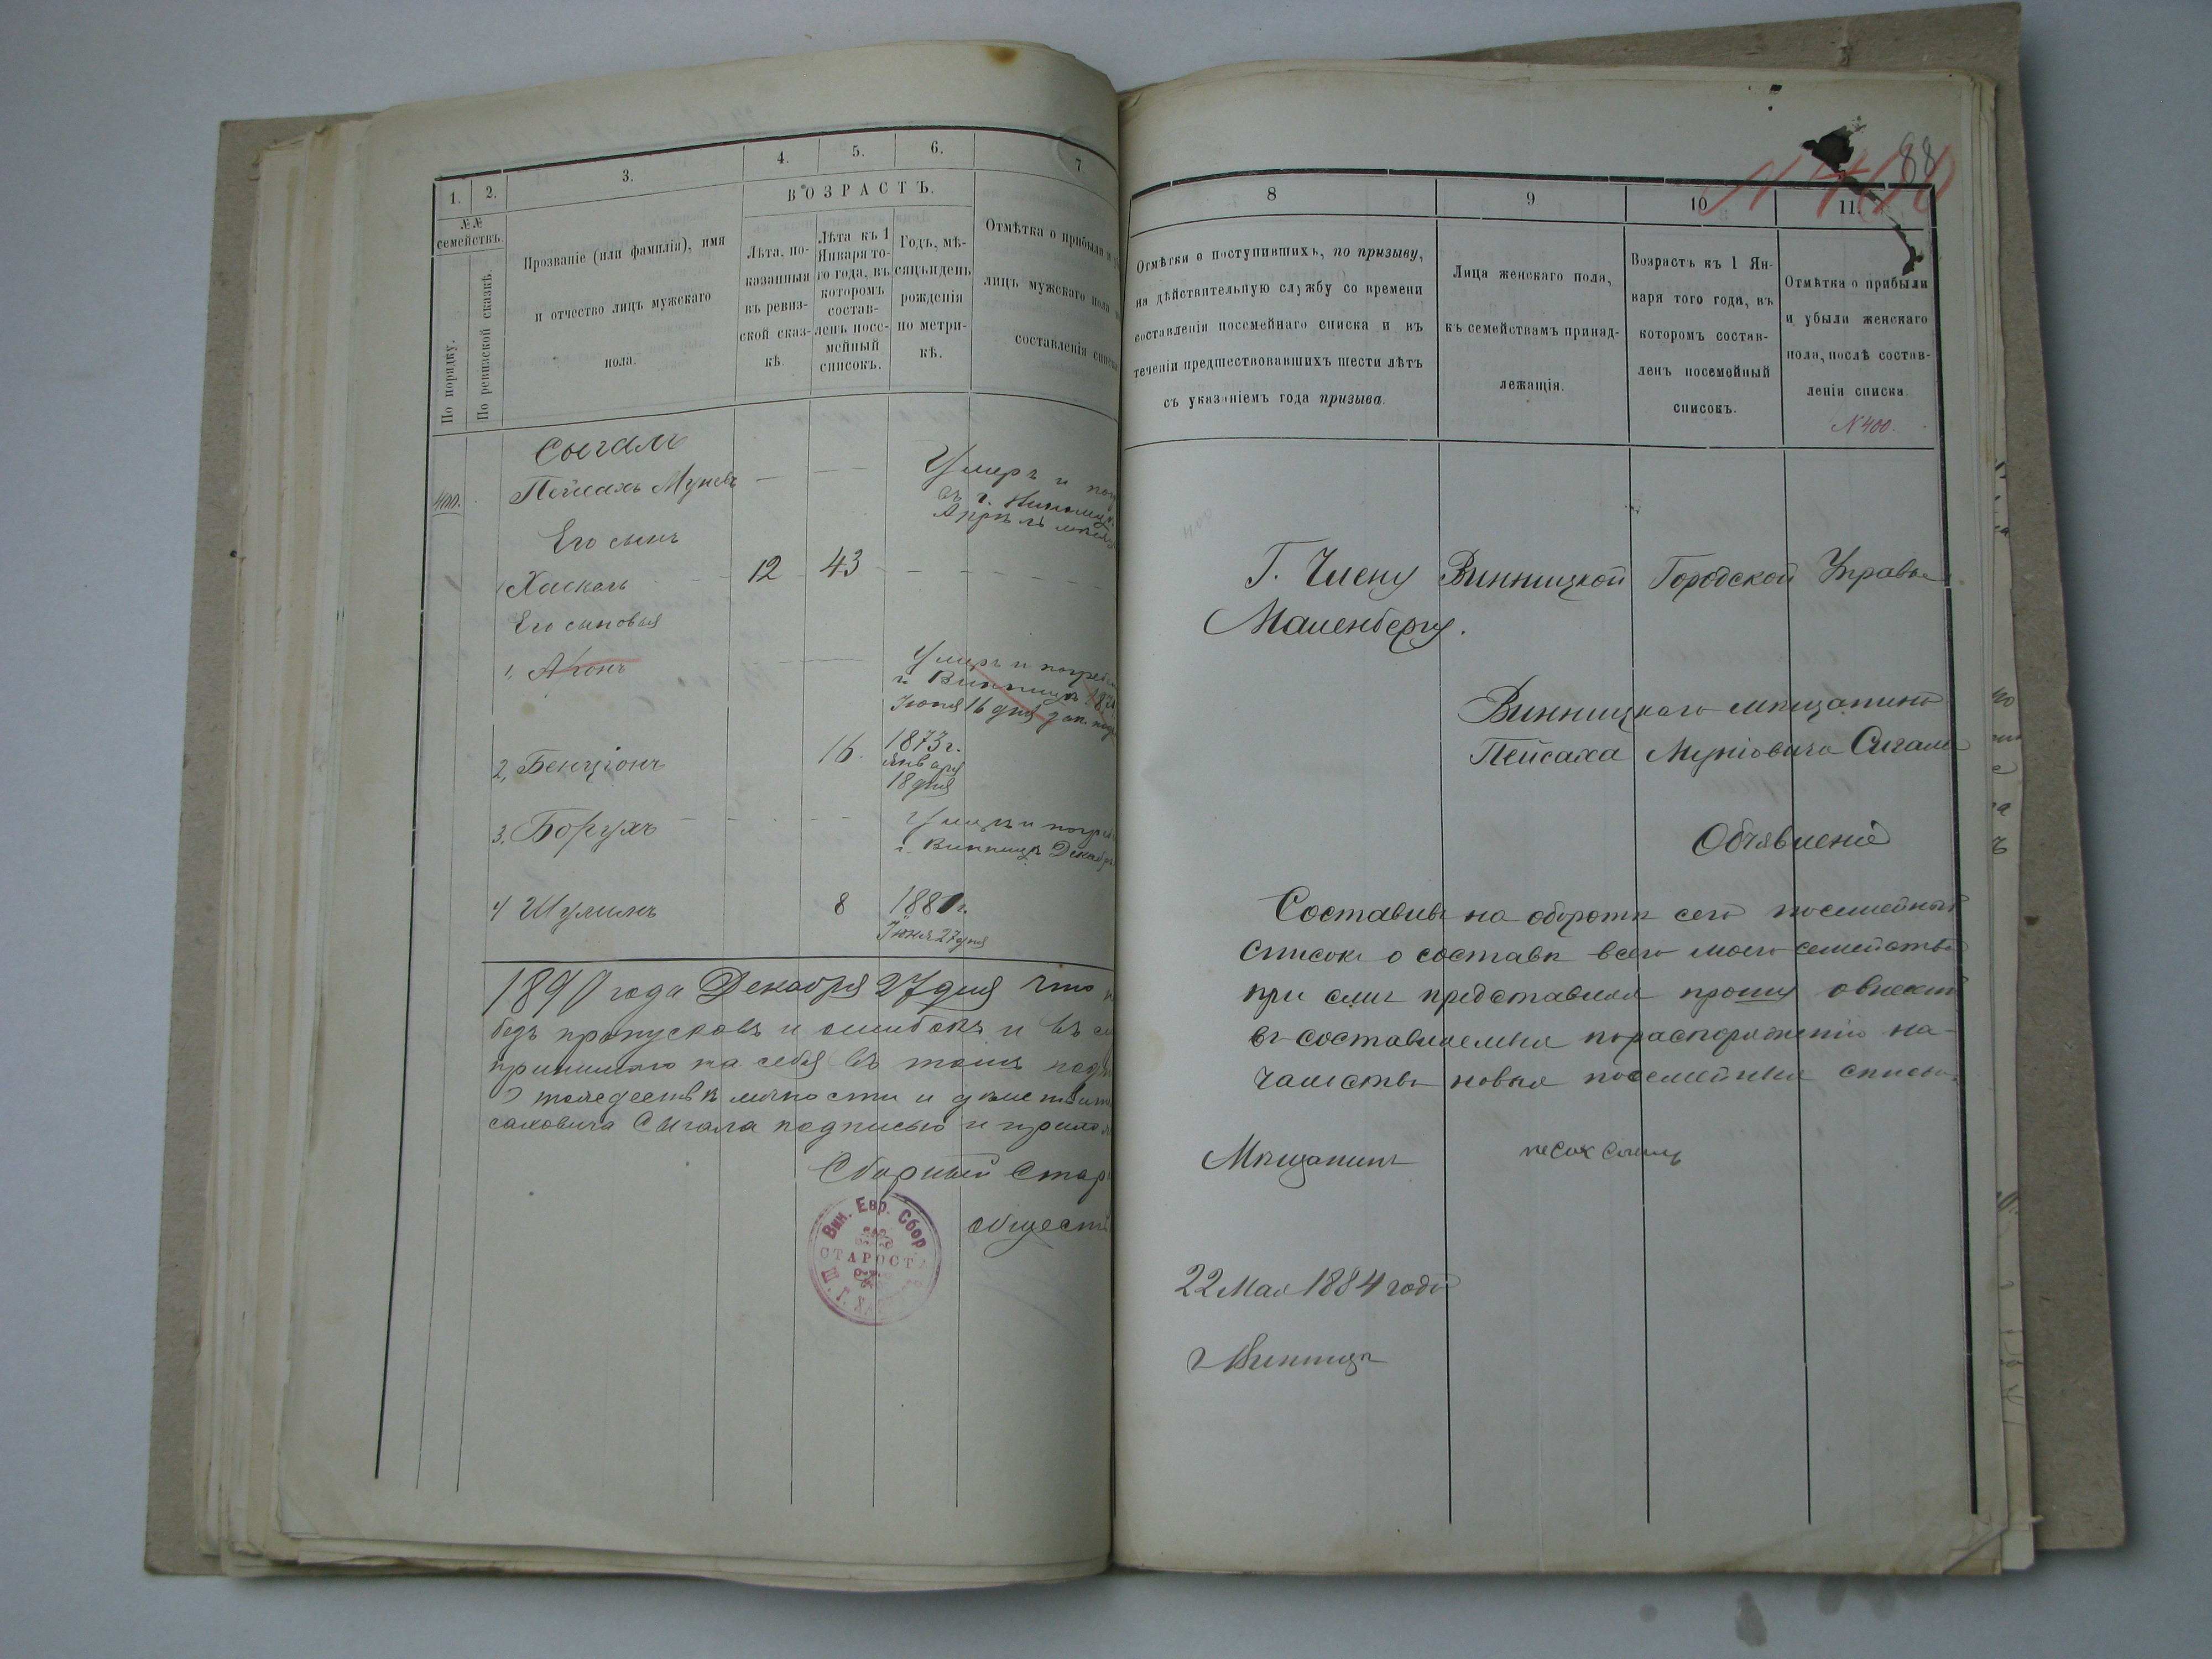 1.
2.
3.
4.
5.
6.
7
№№
семействъ.
По порядку.
По ревизской сказкѣ.
Прозваніе (или фамилія), имя
и отчество лицъ мужскаго
пола.
ВОЗРАСТЪ.
Лѣта, по-
казанныя
въ ревиз-
ской сказ-
кѣ.
Лѣта къ 1
Января то-
го года, въ
которомъ
состав-
ленъ посе-
мейный
списокъ.
Годъ, мѣ-
сяцъ и день
рожденія
по метри-
кѣ.
Отмѣтка о прибыли и
лицъ мужскаго пола
составленія списка
Сыгалъ
400.
Пейсахъ Муневъ
Умеръ и
въ г. Винницѣ
Апрѣль
Его сынъ
1 Хаскель 12 43
Его сыновья
1, Аронъ
Умеръ и погребен
г. Винницѣ
Іюня 16 дня
2, Бенціонъ 16 1873 г.
января
18 дня
3, Борухъ
Умеръ и погреб
г. Винницѣ Декабр
4 Шулимъ 8 1881 г.
Іюня 27 дня
1890 года Декабря 27 дня что
безъ пропусковъ и ошибокъ и въ
принимаю на себя въ томъ
О тождествѣ личности и дѣйствит
саховича Сыгала подписью и прилож
Сборный Стар
обществ
Вин. Евр. Сбор.
СТАРОСТА
88
N 400
8
9
10
11.
Отмѣтки о поступившихъ, по призыву,
на дѣйствительную службу со времени
составленія посемейнаго списка и въ
теченіи предшествовавшихъ шести лѣтъ
съ указаніемъ года призыва.
Лица женскаго пола,
къ семействамъ принад-
лежащія.
Возрастъ къ 1 Ян-
варя того года, въ
которомъ состав-
ленъ посемейный
списокъ.
Отмѣтка о прибыли
и убыли женскаго
пола, послѣ состав-
ленія списка
N 400.
Г. Члену Винницкой Городской Управы
Маленбергу.
Винницкаго мѣщанина
Пейсаха Муніовича Сигала
Объявленіе
Составивъ на оборотѣ сего посемейный
списокъ о составѣ всего моего семейства
при семъ представляя прошу о внесеніи
въ составляемыя по распоряженію на-
чальства новыя посемейныя списки
Мѣщанинъ
22 Мая 1884 года
г Винница